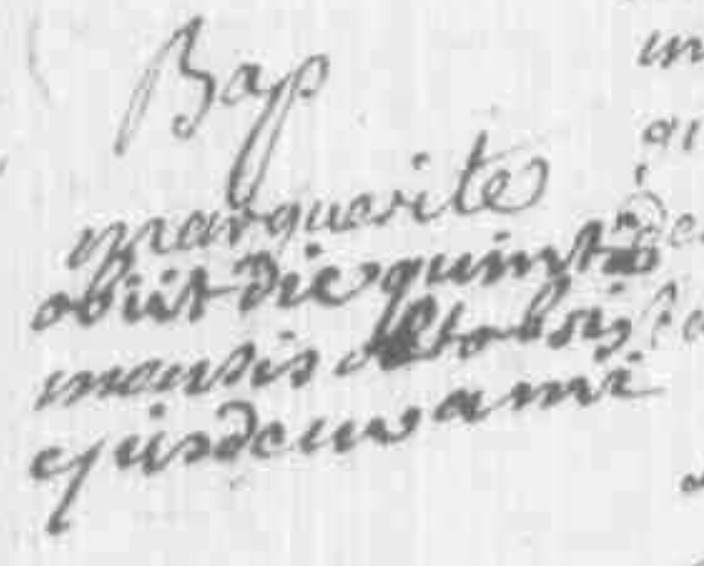 Bap
marguerite
obiit die quinta
mensis octobris
ejusdem anni